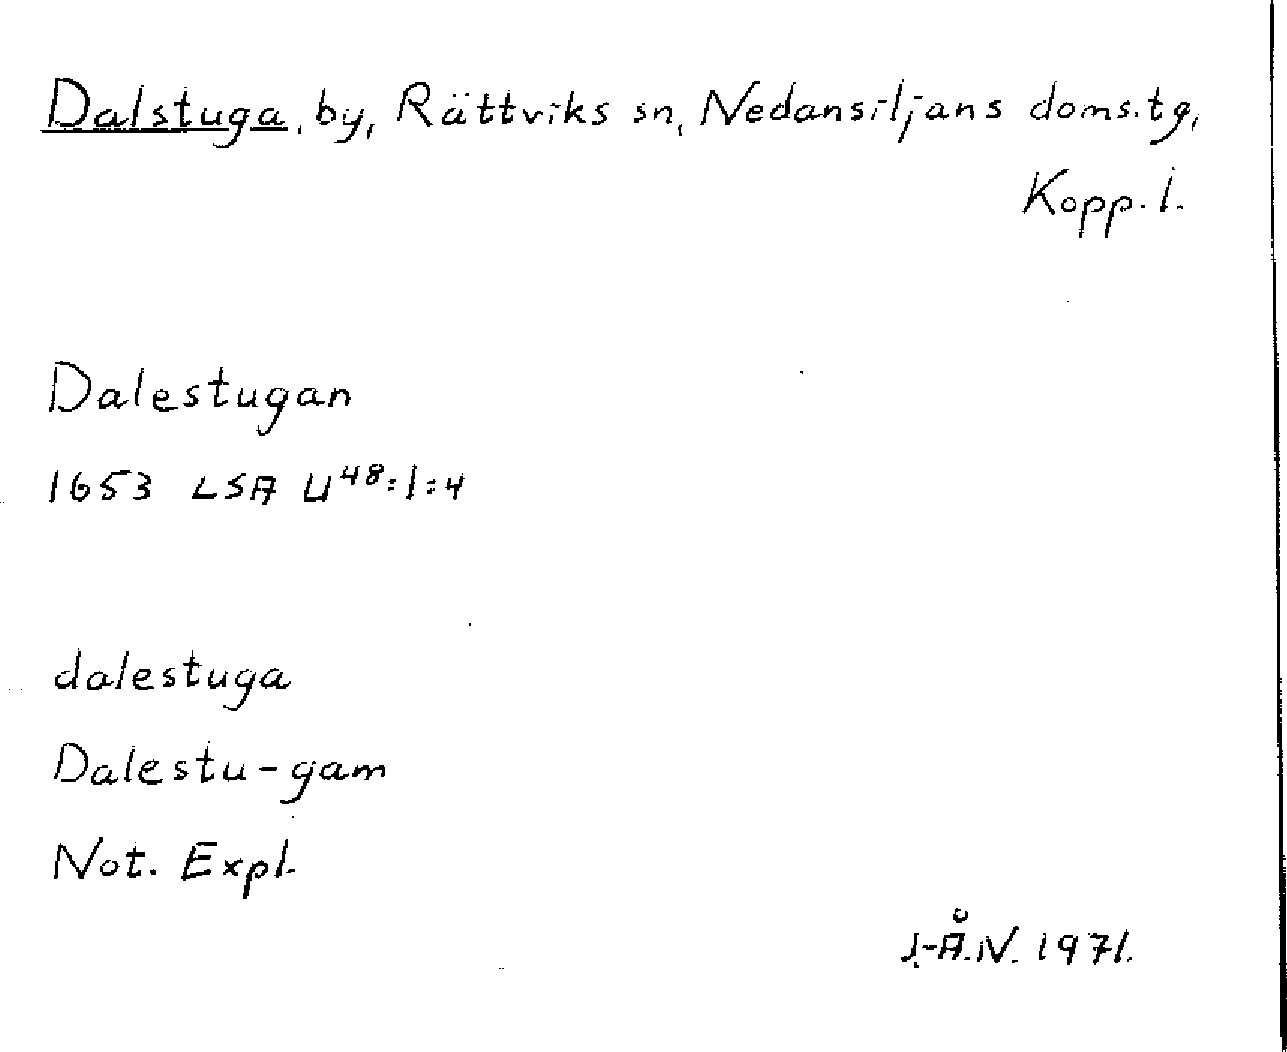 Dalstuga, by, Rättviks sn, Nedansiljans doms.tg,
Kopp. l.
Dalestugan
1653 LSA U48:1:4
dalestuga
Dalestu-gam
Not. Expl.
J.-Å.N. 1971.